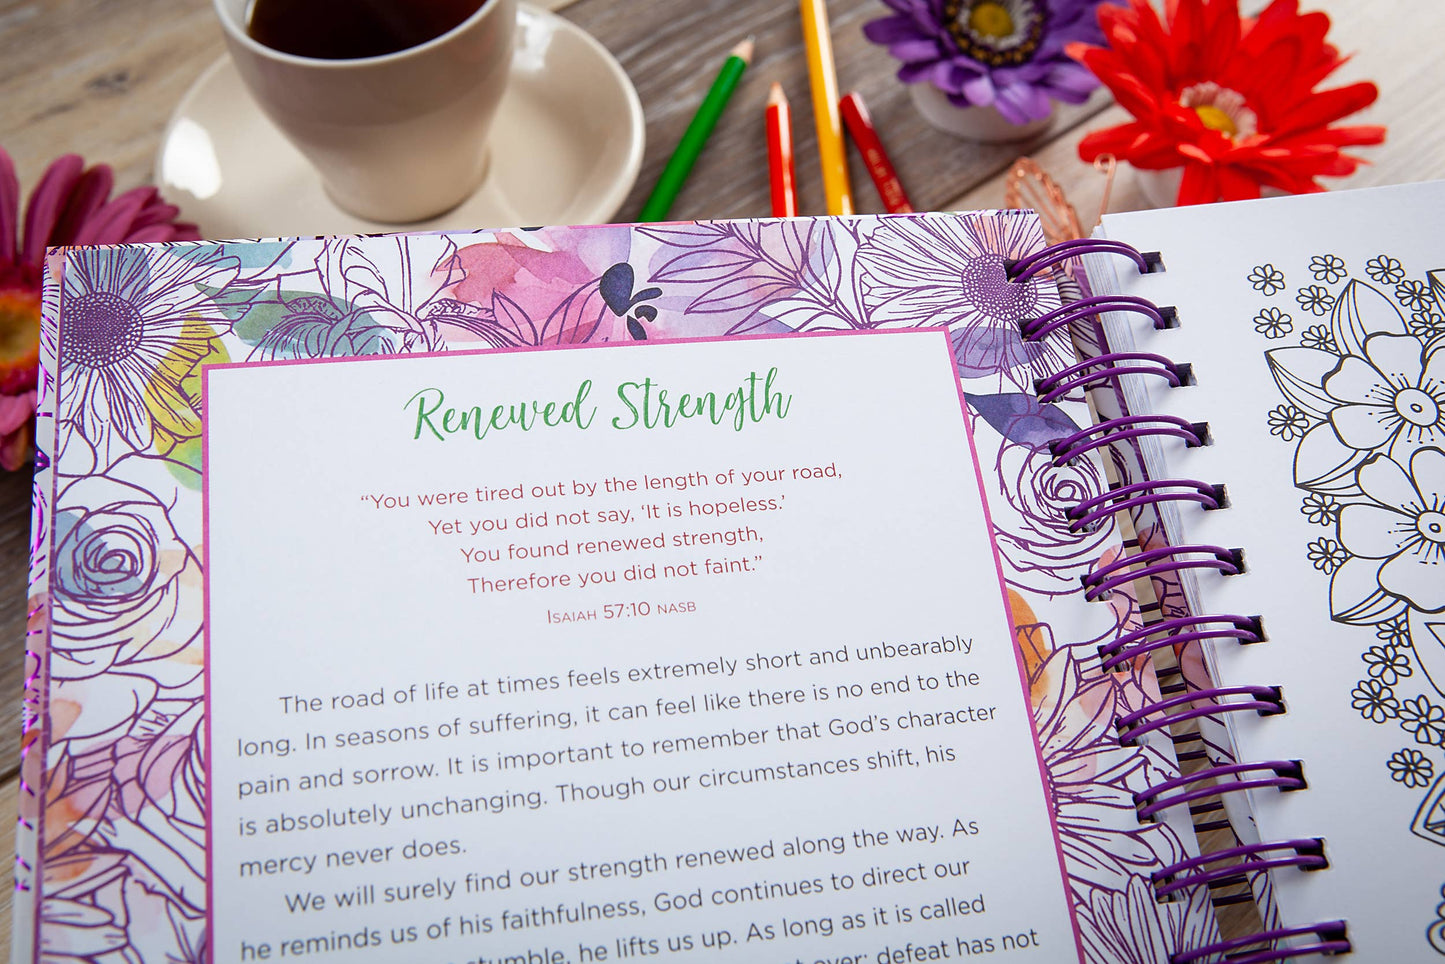 Renewed Strength
“You were tired out by the length of your road,
Yet you did not say, ‘It is hopeless.’
You found renewed strength,
Therefore you did not faint.”
Isaiah 57:10 NASB
The road of life at times feels extremely short and unbearably
long. In seasons of suffering, it can feel like there is no end to the
pain and sorrow. It is important to remember that God’s character
is absolutely unchanging. Though our circumstances shift, his
mercy never does.
We will surely find our strength renewed along the way. As
he reminds us of his faithfulness, God continues to direct our
stumble, he lifts us up. As long as it is called
over; defeat has not